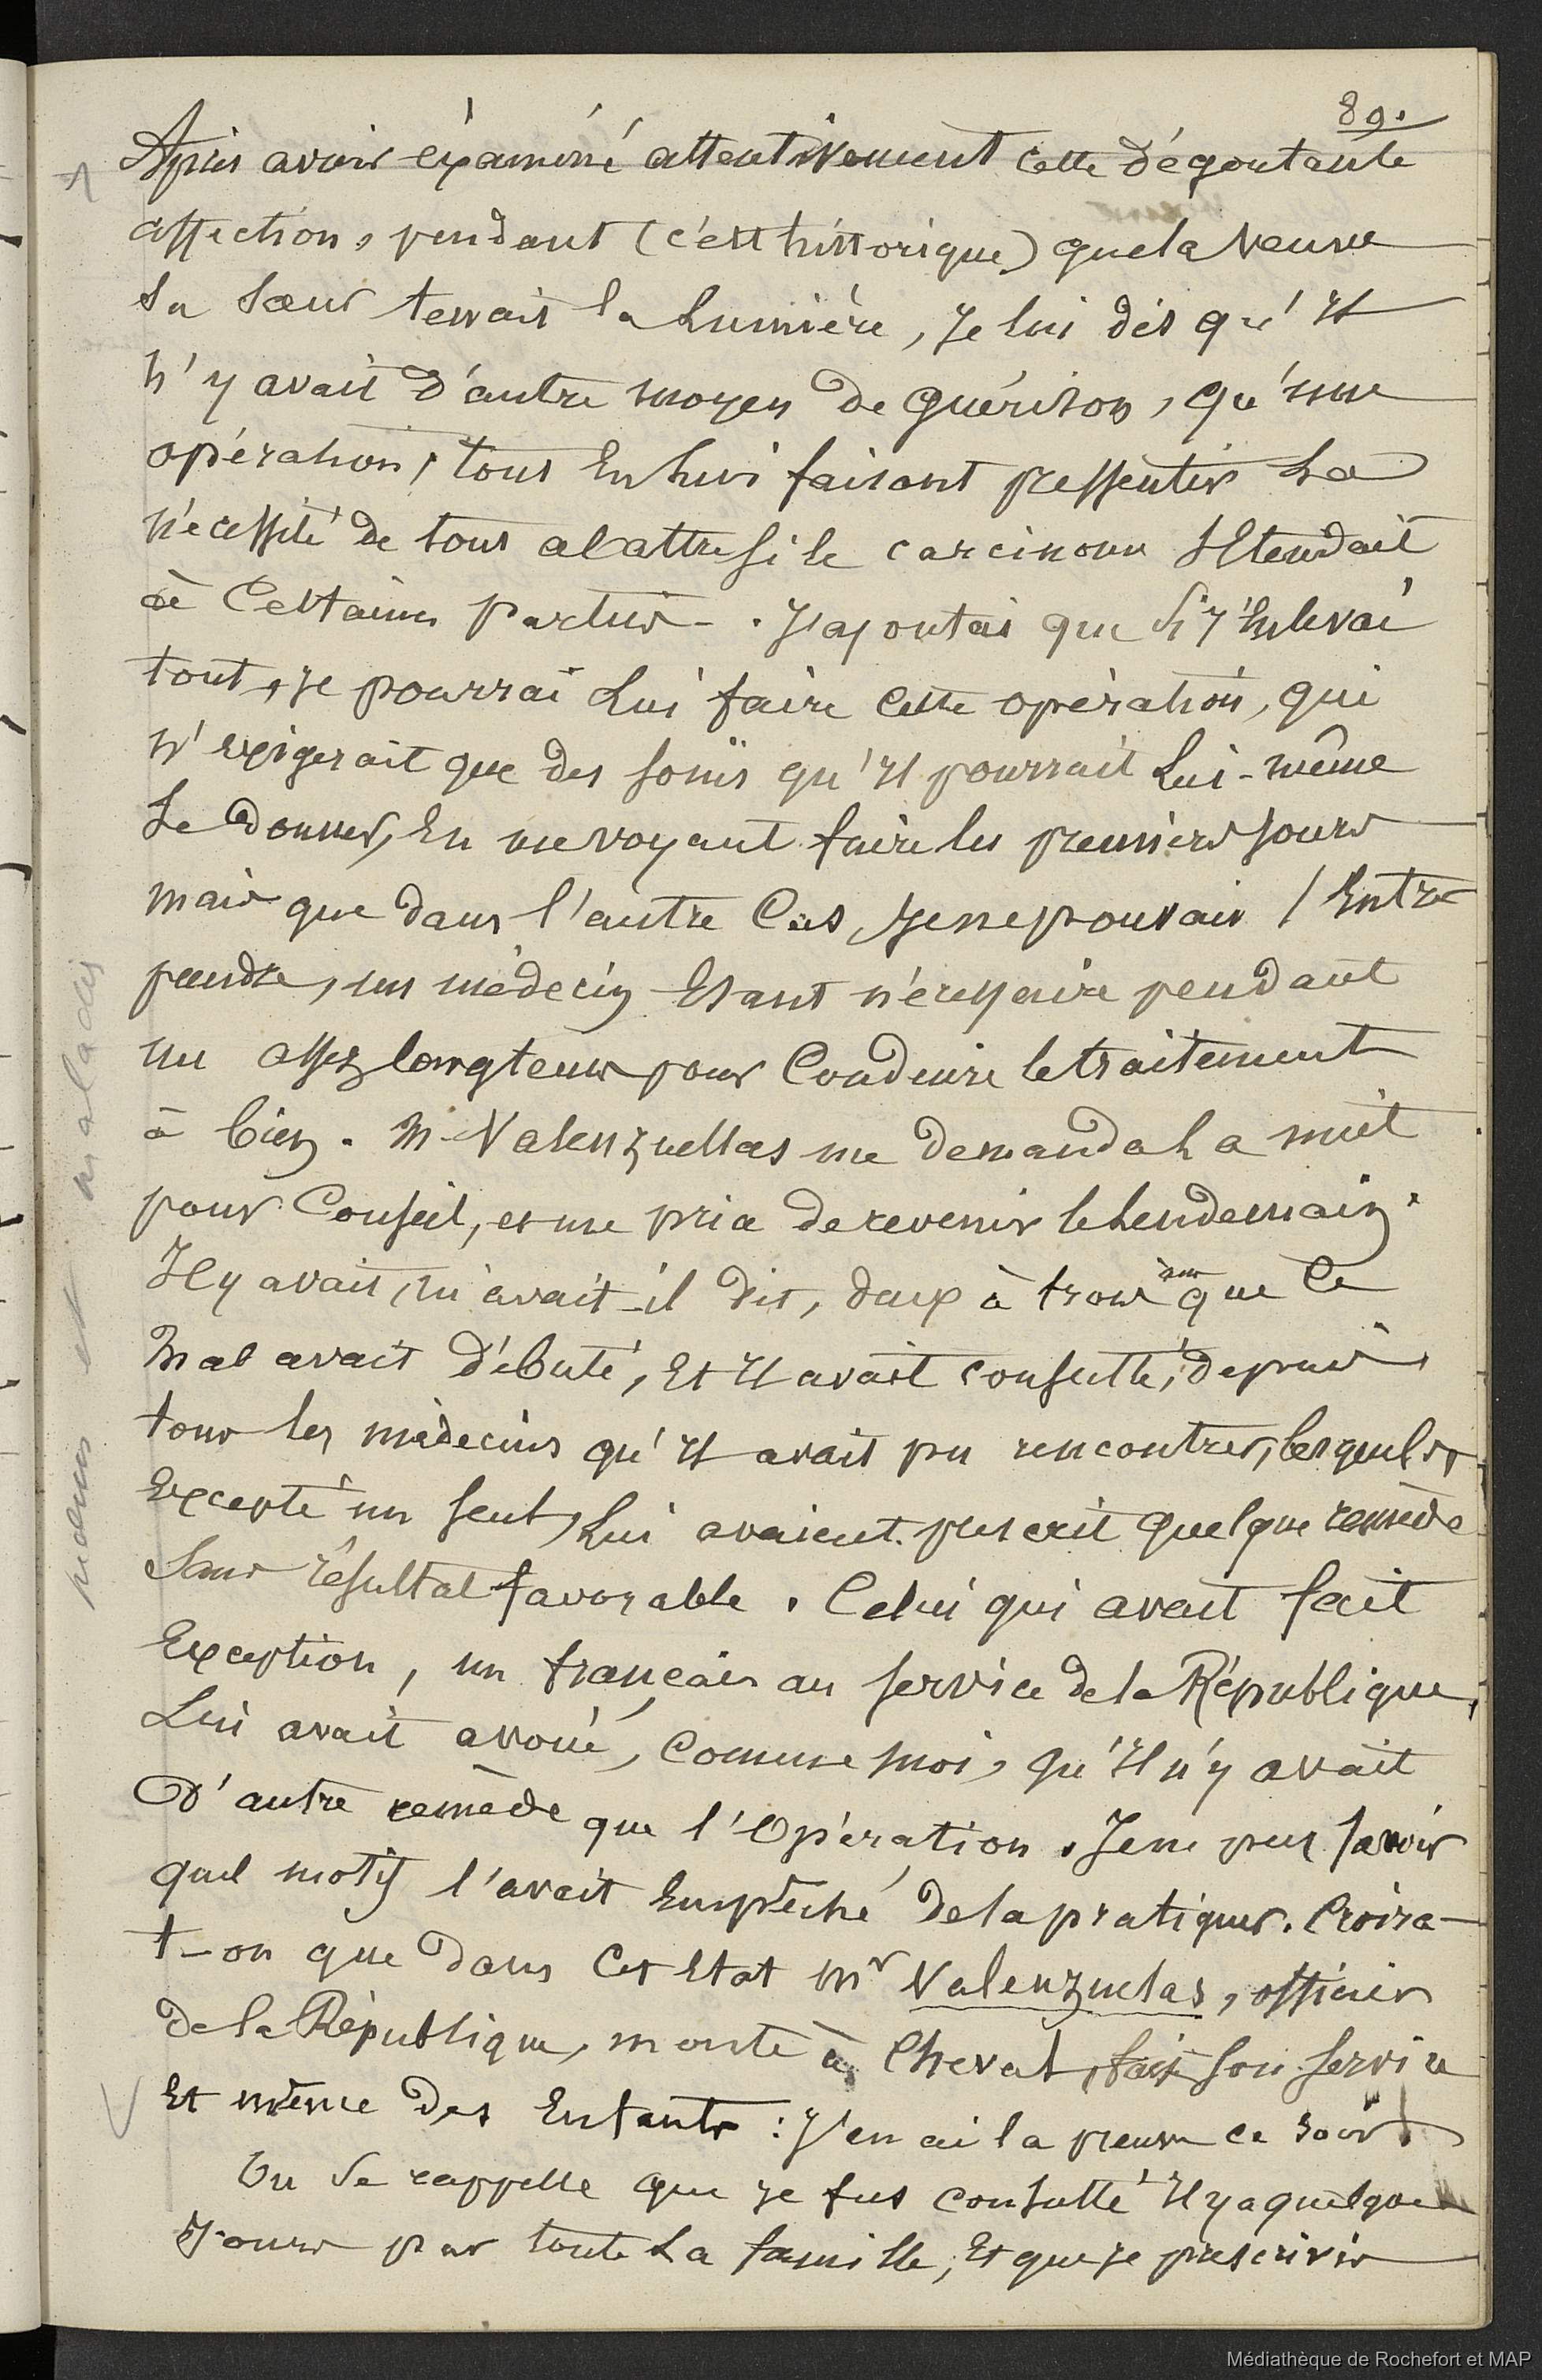 89.
Après avoir éxaminé attentivement cette dégoutante
affection, pendant (c'est historique) que la veuve
sa sœur tenait la lumière, Je lui dis qu'Il
n'y avait d'autre moyen de guérison, qu'une
opération, tout En lui faisant pressentir la
nécessité de tout abattre si le carcinome s'Etendait
à Certaines parties. J'ajoutais que si j'Enlevai
tout, je pourrai Lui faire cette opération, qui
n'exigerait que des soins qu'Il pourrait Lui-même
Se donner, En me voyant faire les premiers jours
mais que dans l'autre Cas, Je ne pouvais l'Entre
prendre, un médecin Etant nécessaire pendant
un assez longtems pour Conduire le traitement
à bien. Mr Valenzuellas me demanda La nuit
pour Conseil, et me pria de revenir le lendemain.
Il y avait, m'avait-il dit, deux à trois ans que le
mal avait débuté, Et Il avait consulté, depuis,
tous les médecins qu'Il avait pu rencontrer, lesquels,
Excepté un seul, Lui avaient prescrit quelque remède
Sans résultat favorable. Celui qui avait fait
Exception, un français au service de la République,
Lui avait avoué, comme moi, qu'Il n'y avait
D'autre remède que l'Opération. Je ne peux savoir
quel motif l'avait Empêché de la pratiquer. Croira-
t-on que dans cet Etat Mr Valenzuelas, officier
de la République, monte à Cheval, fait son service
Et même des Enfants : J'en ai la preuve ce soir !
On se rappelle que je fus consulté Il y a quelques
Jours par toute La famille, Et que je prescrivis
mœurs et maladies